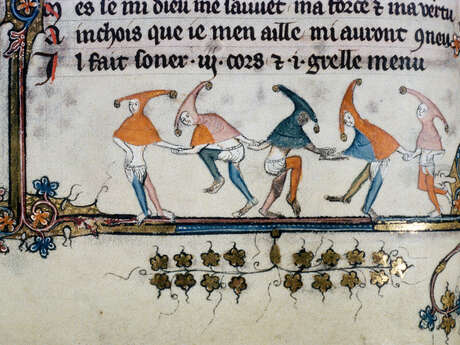 es le mi dieu me sauvet ma force ⁊ ma vertu
Ainchois que ie men aille mi auront
Il fait soner · iij · cors ⁊ · i · grelle menu